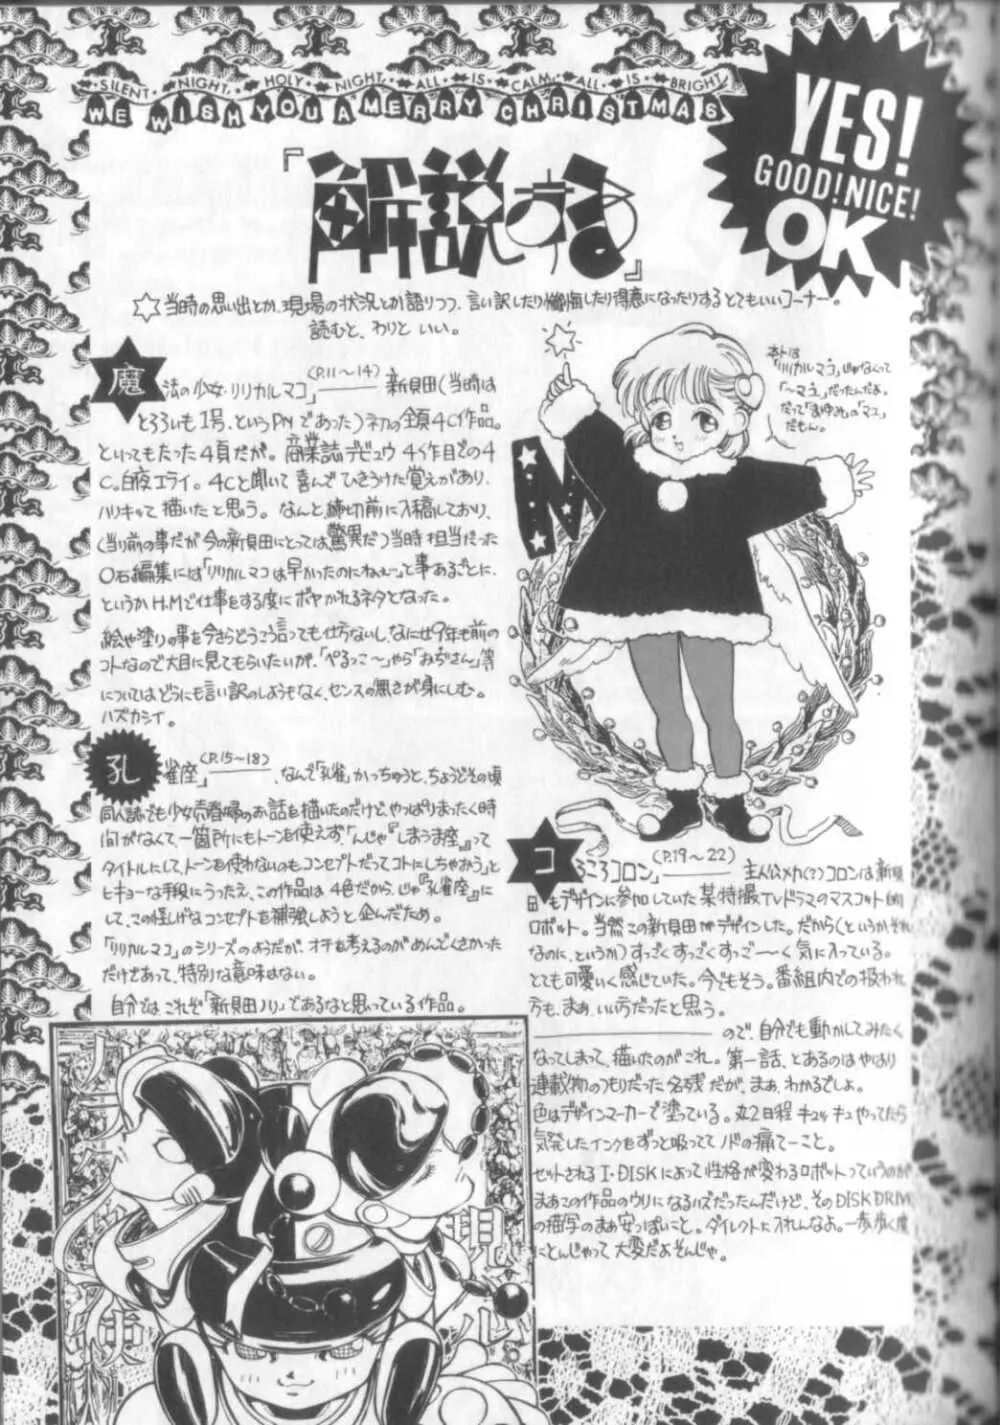 SILENT NIGHT, HOLY NIGHT ALL IS CALM, ALL IS BRIGHT
WE WISH YOU A MERRY CHRISTMAS
YES!
GOOD!NICE!
OK
『解説する』
☆当時の思い出とか、現場の状況とか語りつつ、言い訳したり懺悔したり得意になったりするとてもいいコーナー。
読むと、わりと いい。
魔法の少女・リリカルマコ」(P.11〜14)―――新貝田(当時は
とろろいも1号、というPNであった)初の全頁4C作品。
といってもたった4頁だが。商業誌デビュウ4作目での4
C。白夜エライ。4Cと聞いて喜んでひきうけた覚えがあり、
ハリキって描いたと思う。なんと、締切前に入稿しており、
(当り前の事だが今の新貝田にとっては驚異だ)当時担当だった
〇石編集には「リリカルマコは早かったのにねぇ〜」と事あるごとに、
というかH.Mで仕事をする度にボヤかれるネタとなった。
絵や塗りの事を今さらどうこう言っても仕方ないし、なにせ9年も前の
コトなので大目に見てもらいたいが、「ぺるっこ〜」やら「おぢさん」等
についてはどうにも言い訳のしようもなく、センスの無さが身にしむ。
ハズカシイ。
本トは
「リリカルマコ」じゃなくて
「〜マユ」だったんだよ。
だって「まゆみ」の「マユ」
だもん。
M
孔雀座」(P.15〜18)―――、なんで「孔雀」かっちゅうと、ちょうどその頃
同人誌でも少女売春婦のお話を描いたのだけど、やっぱりまったく時
間がなくて、一箇所にもトーンを使えず、「んじゃ『しまうま座』って
タイトルにして、トーンを使わないのもコンセプトだってコトにしちゃおう」と
ヒキョーな手段にうったえ、この作品は4色だから、じゃ『孔雀座』に
して、この怪しげなコンセプトを補強しようと企んだため。
「リリカルマコ」のシリーズのようだが、オチを考えるのがめんどくさかった
だけであって、特別な意味はない。
自分では、これぞ「新貝田ノリ」であるなと思っている作品。
コろころコロン」(P.19〜22)―――主人公メカ(?)コロンは新貝
田もデザインに参加していた某特撮TVドラマのマスコット的
ロボット。当然この新貝田がデザインした。だから(というか、それ
なのに、というか)すっごくすっごくすっご――く気に入っている。
とても可愛いく感じていた。今でもそう。番組内での扱われ
方も、まぁ、いい方だったと思う。
―――ので、自分でも動かしてみたく
なってしまって、描いたのがこれ。第一話、とあるのはやはり
連載物のつもりだった名残だが、まぁ、わかるでしょ。
色はデザインマーカーで塗っている。丸2日程キュッキュやってたら
気発したインクをずっと吸っててノドの痛てーこと。
セットされるI-DISKによって性格が変わるロボットっていうのが
まあこの作品のウリになるハズだったんだけど、そのDISK DRIVE
の描写のまぁ安っぽいこと。ダイレクトに入れんなよ。一歩歩く度
にとんじゃって大変だよそんじゃ。
現
使